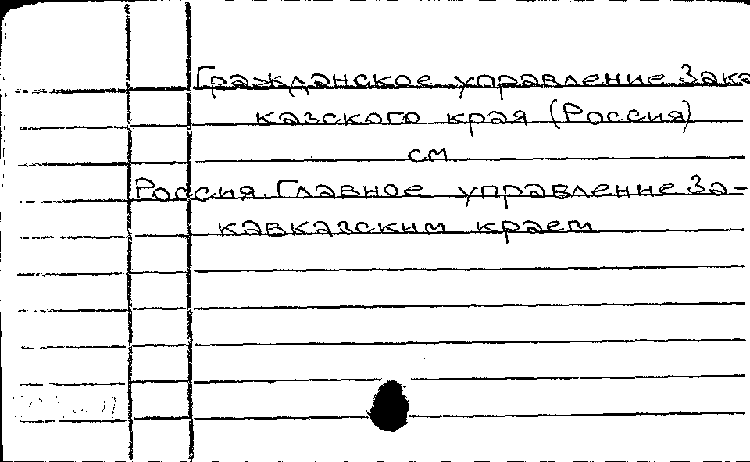 Гражданское управление Зака
казского края (Россия)
см
Россия. Главное управление За-
кавказским краем